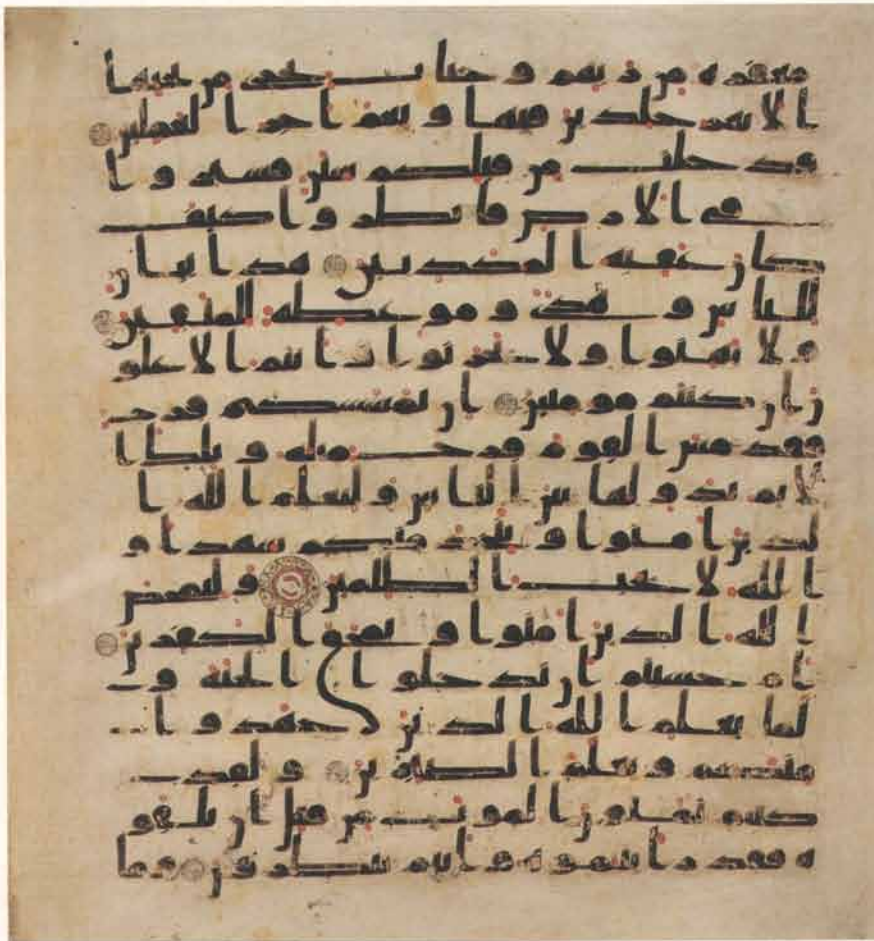 مغفرة من ربهم وجنت تجرى من تحتها ا
لانهر خلدين فيها ونعم اجر العملين
قد خلت من قبلكم سنن فسيروا
فى الارض فانظروا كيف
كان عقبة المكذبين هذا بيان
للناس وهدى وموعظة للمتقين
ولا تهنوا ولا تحزنوا وانتم الاعلو
ن ان كنتم مومنين ان يمسسكم قرح
فقد مس القوم قرح مثله وتلك ا
لايام نداولها بين الناس وليعلم الله ا
لذين امنوا ويتخذ منكم شهدا و
الله لا يحب الظلمين وليمحص
الله الذين امنوا ويمحق الكفرين
ام حسبتم ان تدخلوا الجنة و
لما يعلم الله الذين جهدوا
منكم ويعلم الصبرين ولقد
كنتم تمنون الموت من قبل ان تلقو
ه فقد رايتموه وانتم تنظرون وما